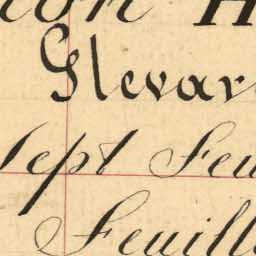 Glevar
Sept Feu
Feuill